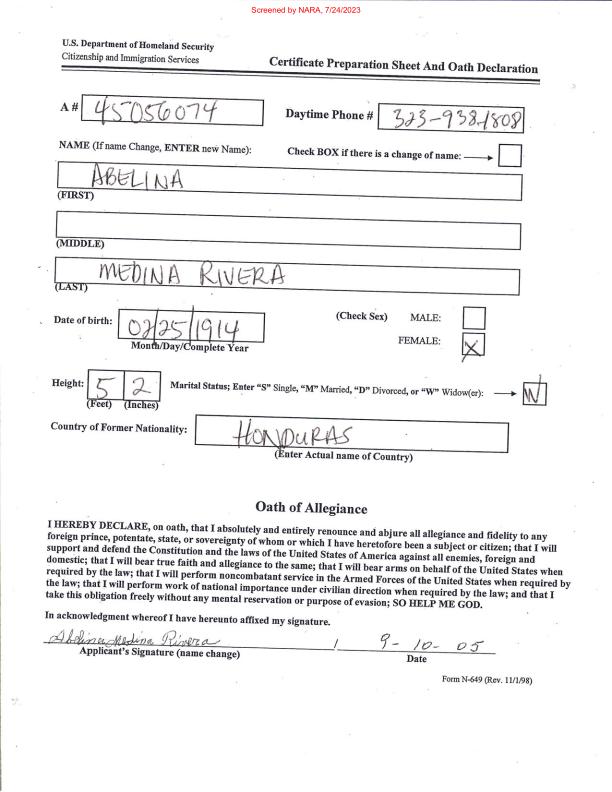 Screened by NARA, 7/24/2023
U.S. Department of Homeland Security
Citizenship and Immigration Services
Certificate Preparation Sheet And Oath Declaration
A # 45056074 Daytime Phone # 323-938-1808
NAME (If name Change, ENTER new Name): Check BOX if there is a change of name:
ABELINA
(FIRST)
(MIDDLE)
MEDINA RIVERA
(LAST)
Date of birth: 02/25/1914 (Check Sex) MALE:
Month/Day/Complete Year FEMALE: X
Height: 5 2 Marital Status; Enter "S" Single, "M" Married, "D" Divorced, or "W" Widow(er): W
(Feet) (Inches)
Country of Former Nationality: HONDURAS
(Enter Actual name of Country)
Oath of Allegiance
I HEREBY DECLARE, on oath, that I absolutely and entirely renounce and abjure all allegiance and fidelity to any
foreign prince, potentate, state, or sovereignty of whom or which I have heretofore been a subject or citizen; that I will
support and defend the Constitution and the laws of the United States of America against all enemies, foreign and
domestic; that I will bear true faith and allegiance to the same; that I will bear arms on behalf of the United States when
required by the law; that I will perform noncombatant service in the Armed Forces of the United States when required by
the law; that I will perform work of national importance under civilian direction when required by the law; and that I
take this obligation freely without any mental reservation or purpose of evasion; SO HELP ME GOD.
In acknowledgment whereof I have hereunto affixed my signature.
Abelina Medina Rivera / 9-10-05
Applicant's Signature (name change) Date
Form N-649 (Rev. 11/1/98)